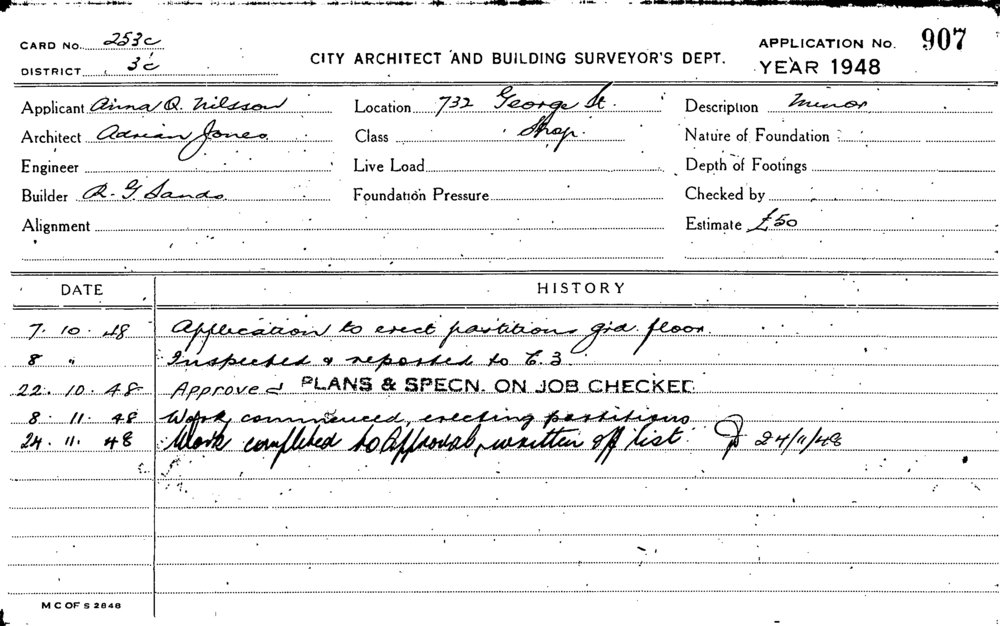 CARD No. 253c
DISTRICT 3c
CITY ARCHITECT AND BUILDING SURVEYOR'S DEPT.
APPLICATION No. 907
YEAR 1948
Applicant Anna Q. Nilsson Location 732 George St. Description Minor
Architect Adrian Jones Class Shop. Nature of Foundation
Engineer Live Load Depth of Footings
Builder R. G Sands Foundation Pressure Checked by
Alignment Estimate £50
DATE HISTORY
7. 10. 48 Application to erect partitions grd. floor
8 " Inspected & reported to C. 3.
22. 10. 48 Approved PLANS & SPECN. ON JOB CHECKED
8. 11. 48 Work commenced, erecting partitions
24. 11. 48 Work completed to approval, written off list. 24/11/48
M C OF S 2848